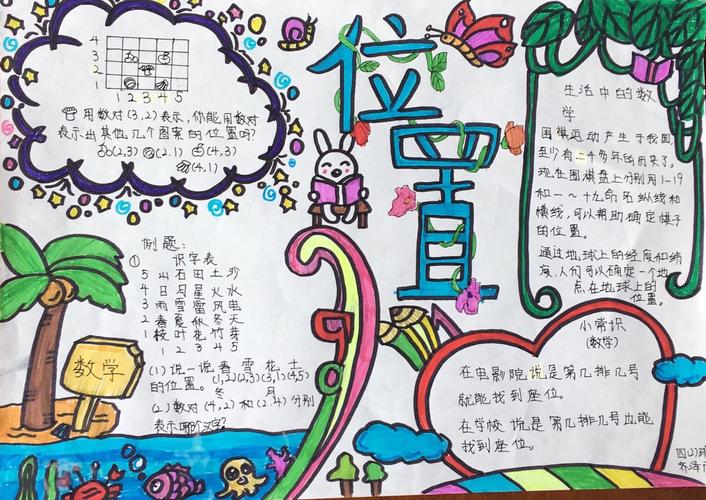 位置
4
3
2
1
1 2 3 4 5
用数对(3,2)表示,你能用数对
表示出其他几个图案的位置吗?
(2,3) (2.1) (4,3)
(4,1)
例题:
① 识字表
5 山石田土沙
4 日月星火水
3 雨雪雷风电
2 春夏秋冬天
1 枝叶花竹芽
1 2 3 4 5
(1)说一说春 雪 花 土
的位置。(1,2)(2,3)(3,1)(4,5)
冬 月
(2)数对(4,2)和(2.4)分别
表示哪个文字?
数学
生活中的数
学
围棋运动产生于我国,
至少有二千多年的历史了。
现在围棋盘上分别用1-19
和一~十九命名纵线和
横线,可以帮助确定棋子
的位置。
通过地球上的经度和纬
度,人们可以确定一个地
点在地球上的
位置。
小常识
(数学)
在电影院说是第几排几号
就能找到座位。
在学校说是第几排几号也能
找到座位。
四(1)班